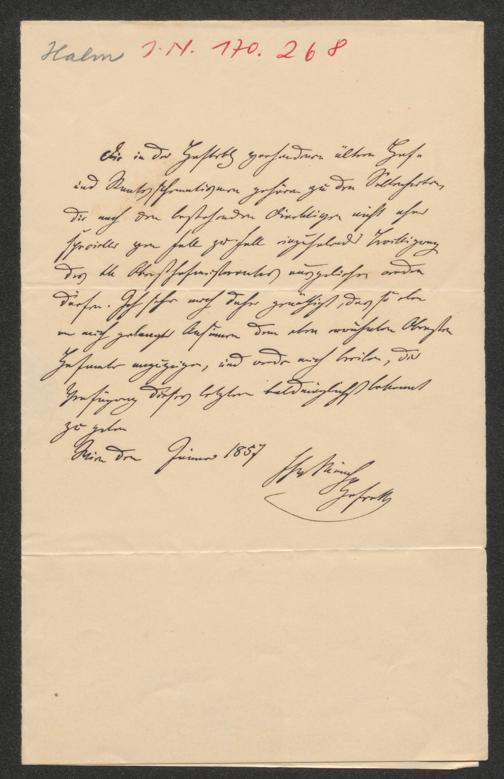 Halm I.N. 170.268
Die in der Hofbibl. vorhandenen ältern Hof-
und Staatsschematismen gehören zu den Seltenheiten,
die nach den bestehenden Direktiven nicht ohne
specielle von Fall zu Fall einzuholende Bewilligung
des kk Obersthofmeisteramtes ausgeliehen werden
dürfen. Ich sehe mich daher genöthigt, das so eben
an mich gelangte Ansinnen dem oben erwähnten Obersten
Hofamte anzuzeigen, und werde mich beeilen, die
Verfügung dieses letztern baldmöglichst bekannt
zu geben
Wien den Jänner 1857
Münch
Hofrath